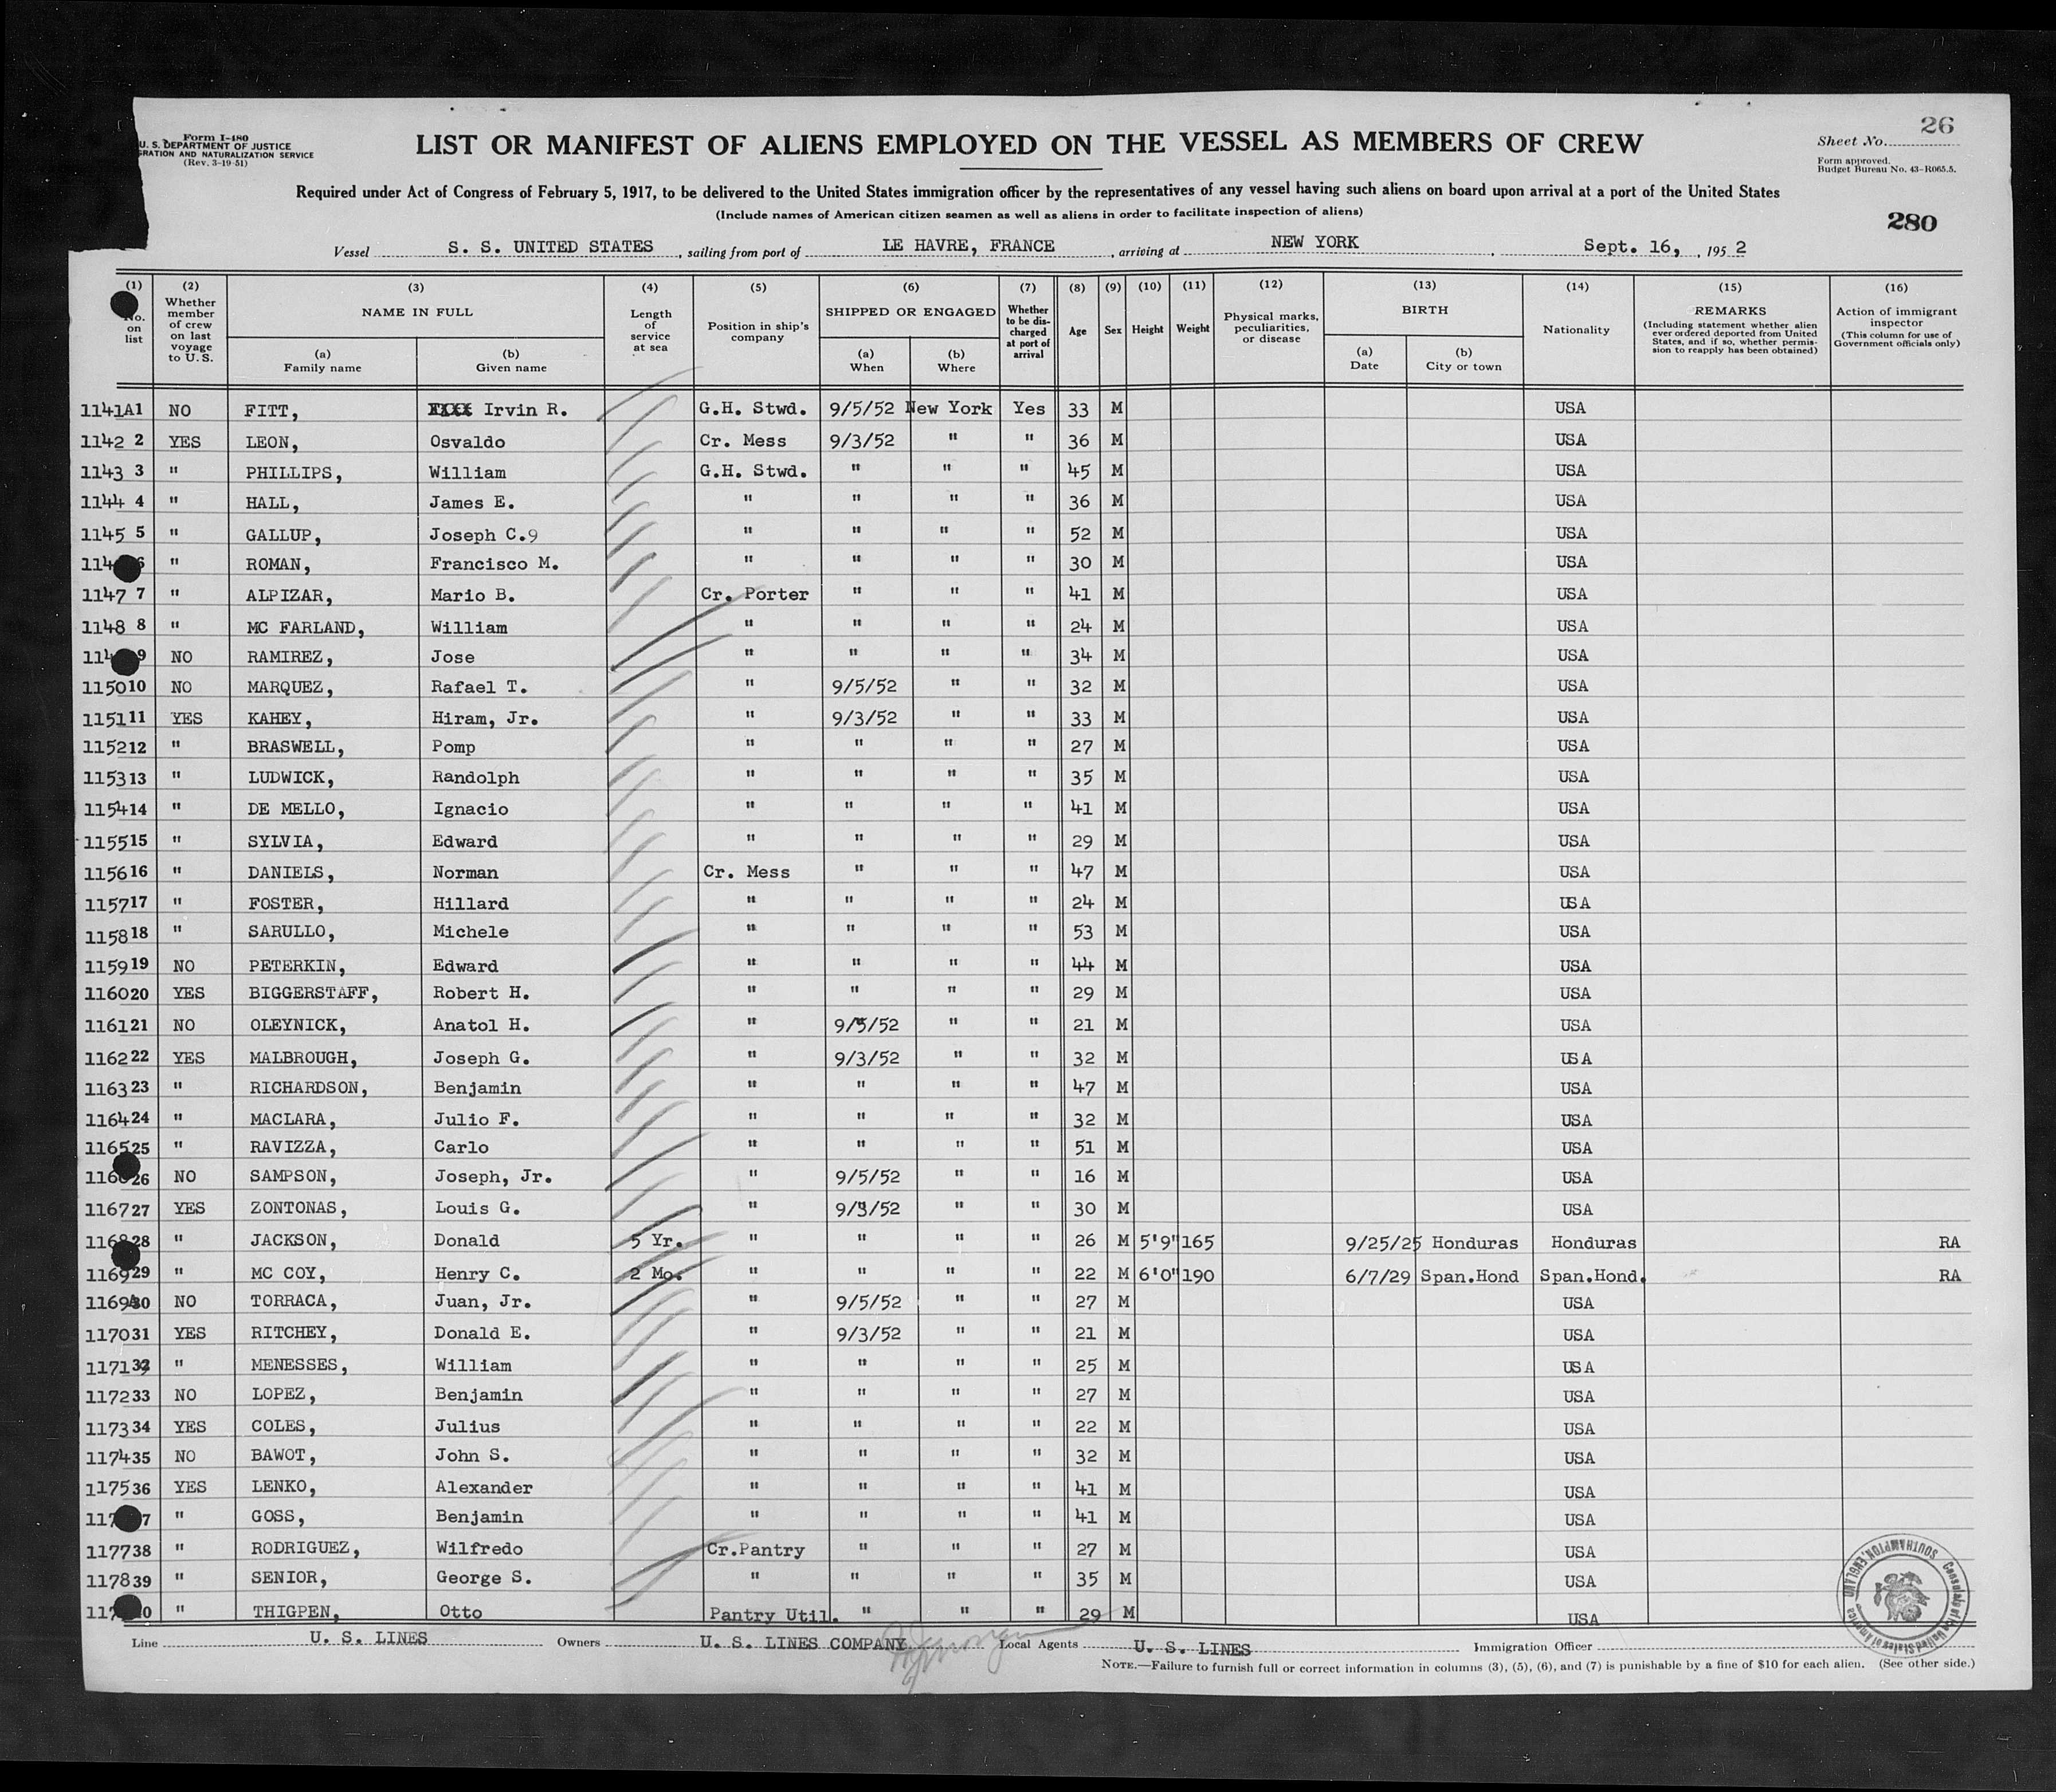 Form I-480
U. S. DEPARTMENT OF JUSTICE
GRATION AND NATURALIZATION SERVICE
(Rev. 3-19-51)
LIST OR MANIFEST OF ALIENS EMPLOYED ON THE VESSEL AS MEMBERS OF CREW
Sheet No. 26
Form approved.
Budget Bureau No. 43-R065.5.
Required under Act of Congress of February 5, 1917, to be delivered to the United States immigration officer by the representatives of any vessel having such aliens on board upon arrival at a port of the United States
(Include names of American citizen seamen as well as aliens in order to facilitate inspection of aliens)
280
Vessel S. S. UNITED STATES, sailing from port of LE HAVRE, FRANCE, arriving at NEW YORK, Sept. 16, , 195 2
(1) No. on list
(2) Whether member of crew on last voyage to U. S.
(3) NAME IN FULL
(a) Family name
(b) Given name
(4) Length of service at sea
(5) Position in ship's company
(6) SHIPPED OR ENGAGED
(a) When
(b) Where
(7) Whether to be discharged at port of arrival
(8) Age
(9) Sex
(10) Height
(11) Weight
(12) Physical marks, peculiarities, or disease
(13) BIRTH
(a) Date
(b) City or town
(14) Nationality
(15) REMARKS
(Including statement whether alien ever ordered deported from United States, and if so, whether permission to reapply has been obtained)
(16) Action of immigrant inspector
(This column for use of Government officials only)
1141A1 NO FITT, Irvin R. G.H. Stwd. 9/5/52 New York Yes 33 M USA
1142 2 YES LEON, Osvaldo Cr. Mess 9/3/52 " " 36 M USA
1143 3 " PHILLIPS, William G.H. Stwd. " " " 45 M USA
1144 4 " HALL, James E. " " " " 36 M USA
1145 5 " GALLUP, Joseph C.9 " " " " 52 M USA
114 6 " ROMAN, Francisco M. " " " " 30 M USA
1147 7 " ALPIZAR, Mario B. Cr. Porter " " " 41 M USA
1148 8 " MC FARLAND, William " " " " 24 M USA
114 9 NO RAMIREZ, Jose " " " " 34 M USA
1150 10 NO MARQUEZ, Rafael T. " 9/5/52 " " 32 M USA
1151 11 YES KAHEY, Hiram, Jr. " 9/3/52 " " 33 M USA
1152 12 " BRASWELL, Pomp " " " " 27 M USA
1153 13 " LUDWICK, Randolph " " " " 35 M USA
1154 14 " DE MELLO, Ignacio " " " " 41 M USA
1155 15 " SYLVIA, Edward " " " " 29 M USA
1156 16 " DANIELS, Norman Cr. Mess " " " 47 M USA
1157 17 " FOSTER, Hillard " " " " 24 M USA
1158 18 " SARULLO, Michele " " " " 53 M USA
1159 19 NO PETERKIN, Edward " " " " 44 M USA
1160 20 YES BIGGERSTAFF, Robert H. " " " " 29 M USA
1161 21 NO OLEYNICK, Anatol H. " 9/5/52 " " 21 M USA
1162 22 YES MALBROUGH, Joseph G. " 9/3/52 " " 32 M USA
1163 23 " RICHARDSON, Benjamin " " " " 47 M USA
1164 24 " MACLARA, Julio F. " " " " 32 M USA
1165 25 " RAVIZZA, Carlo " " " " 51 M USA
1166 26 NO SAMPSON, Joseph, Jr. " 9/5/52 " " 16 M USA
1167 27 YES ZONTONAS, Louis G. " 9/3/52 " " 30 M USA
1168 28 " JACKSON, Donald 5 Yr. " " " " 26 M 5'9" 165 9/25/25 Honduras Honduras RA
1169 29 " MC COY, Henry C. 2 Mo. " " " " 22 M 6'0" 190 6/7/29 Span.Hond Span.Hond. RA
1169A 30 NO TORRACA, Juan, Jr. " 9/5/52 " " 27 M USA
1170 31 YES RITCHEY, Donald E. " 9/3/52 " " 21 M USA
1171 32 " MENESSES, William " " " " 25 M USA
1172 33 NO LOPEZ, Benjamin " " " " 27 M USA
1173 34 YES COLES, Julius " " " " 22 M USA
1174 35 NO BAWOT, John S. " " " " 32 M USA
1175 36 YES LENKO, Alexander " " " " 41 M USA
117 7 " GOSS, Benjamin " " " " 41 M USA
1177 38 " RODRIGUEZ, Wilfredo Cr.Pantry " " " 27 M USA
1178 39 " SENIOR, George S. " " " " 35 M USA
117 0 " THIGPEN, Otto Pantry Util. " " " 29 M USA
Consulate of the United States of America SOUTHAMPTON, ENGLAND
Line U. S. LINES Owners U. S. LINES COMPANY Local Agents U. S. LINES Immigration Officer
NOTE.—Failure to furnish full or correct information in columns (3), (5), (6), and (7) is punishable by a fine of $10 for each alien. (See other side.)